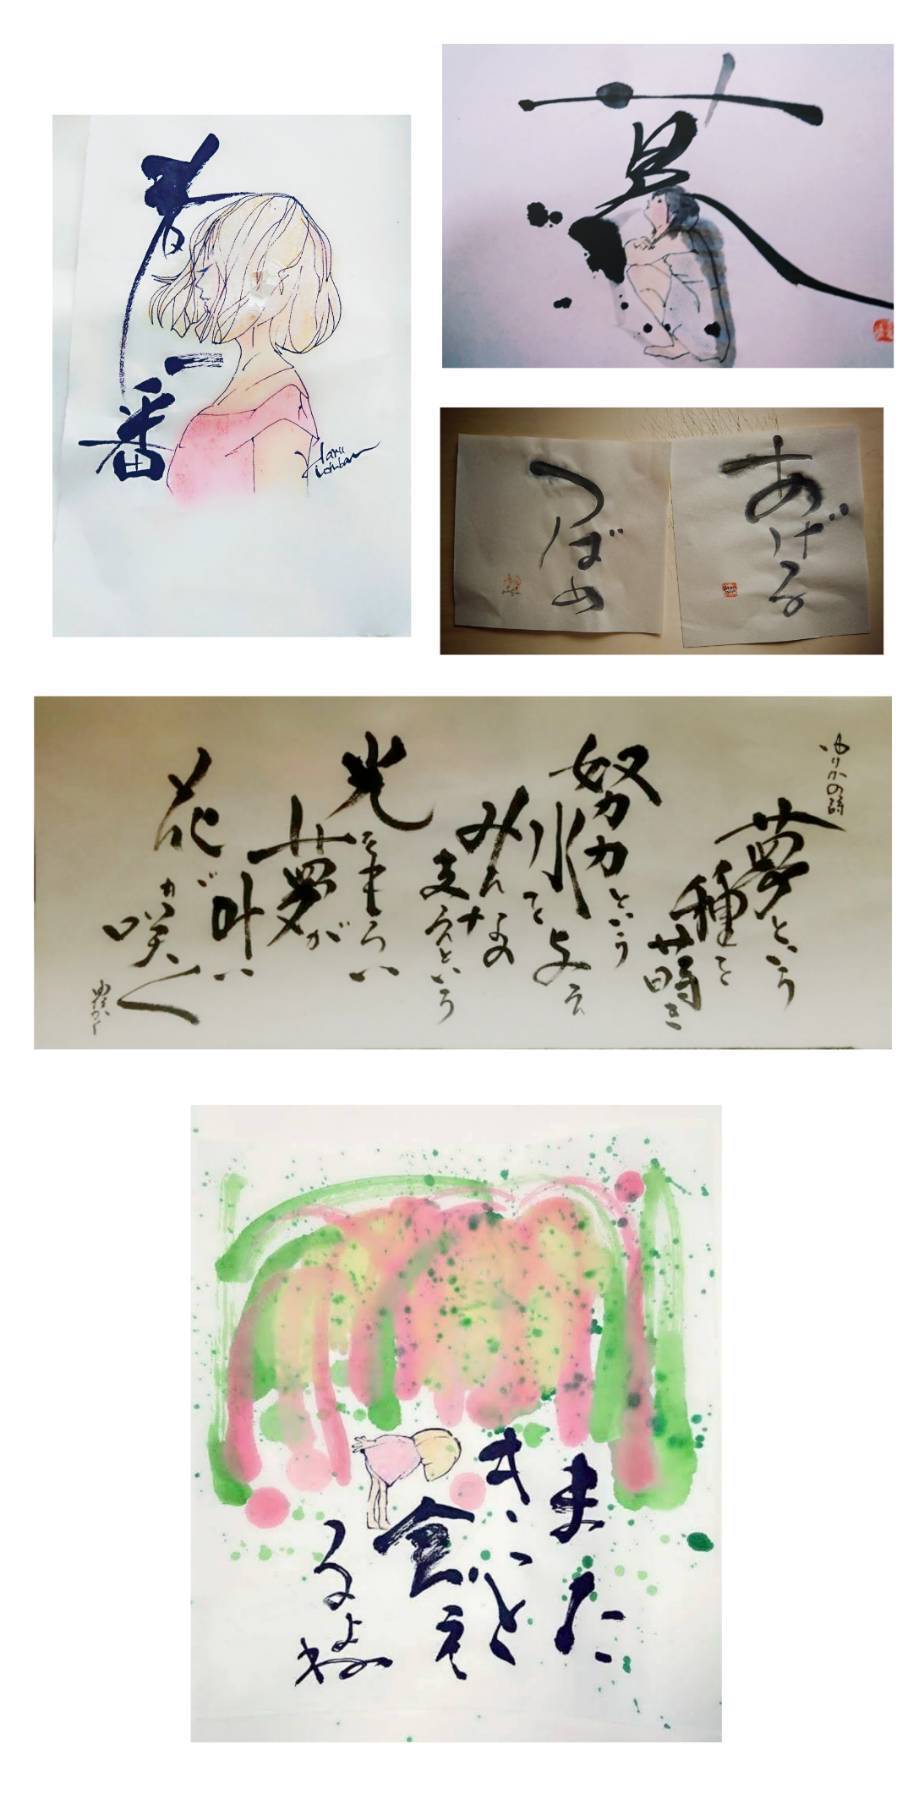 春一番
Haru
ichiban
あげる
つばめ
ゆりかの詩
夢という
種を
蒔き
努力という
水を与え
みんなの
支えという
光をもらい
夢が
叶い
花が
咲く
また
きっと
会え
るよね